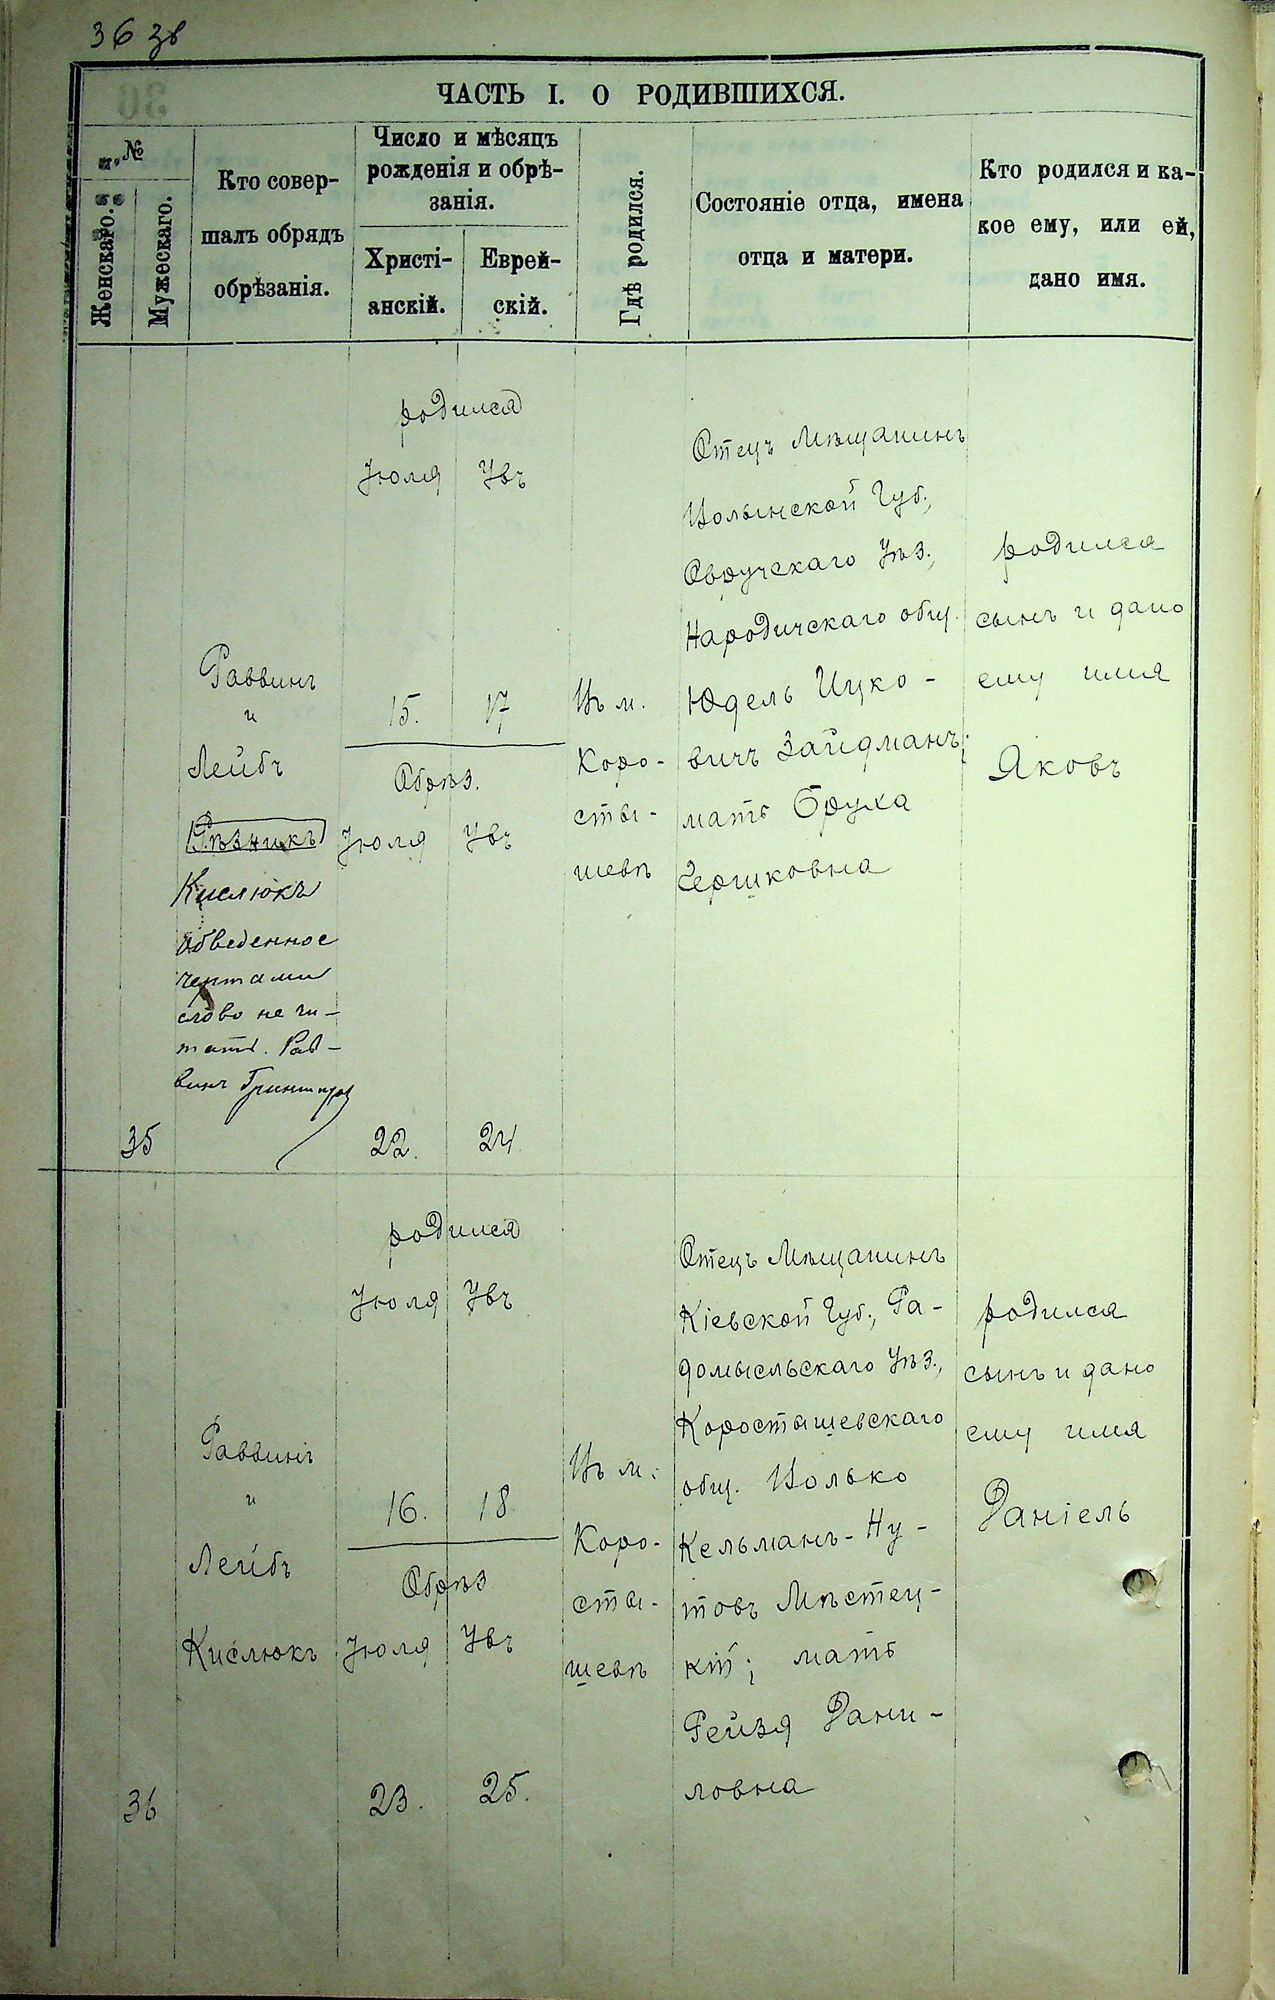 36 зв
ЧАСТЬ I. О РОДИВШИХСЯ.
№
Женскаго.
Мужескаго.
Кто совер-
шалъ обрядъ
обрѣзанія.
Число и мѣсяцъ
рожденія и обрѣ-
занія.
Христі-
анскій.
Еврей-
скій.
Гдѣ родился.
Состояніе отца, имена
отца и матери.
Кто родился и ка-
кое ему, или ей,
дано имя.
35
Раввинъ
и
Лейбъ
Рѣзникъ
Кислюкъ
Обведенное
чертами
слово не чи-
тать. Рав-
винъ
родился
Іюля Увъ
15. 17
Обрѣз.
Іюля Увъ
22. 24.
Въ м.
Коро-
сты-
шевѣ
Отецъ Мѣщанинъ
Волынской Губ.,
Овручскаго Уѣз.,
Народичскаго общ.
Юдель Ицко-
вичъ Зайдманъ;
мать Бруха
Гершковна
родился
сынъ и дано
ему имя
Яковъ
36
Раввинъ
и
Лейбъ
Кислюкъ
родился
Іюля Увъ
16. 18.
Обрѣз
Іюля Увъ
23. 25.
Въ м.
Коро-
сты-
шевѣ
Отецъ Мѣщанинъ
Кіевской Губ., Ра-
домысльскаго Уѣз.,
Коростышевскаго
общ. Волько
Кельманъ-Ну-
товъ Мѣстец-
кій; мать
Рейзя Дани-
ловна
родился
сынъ и дано
ему имя
Даніель